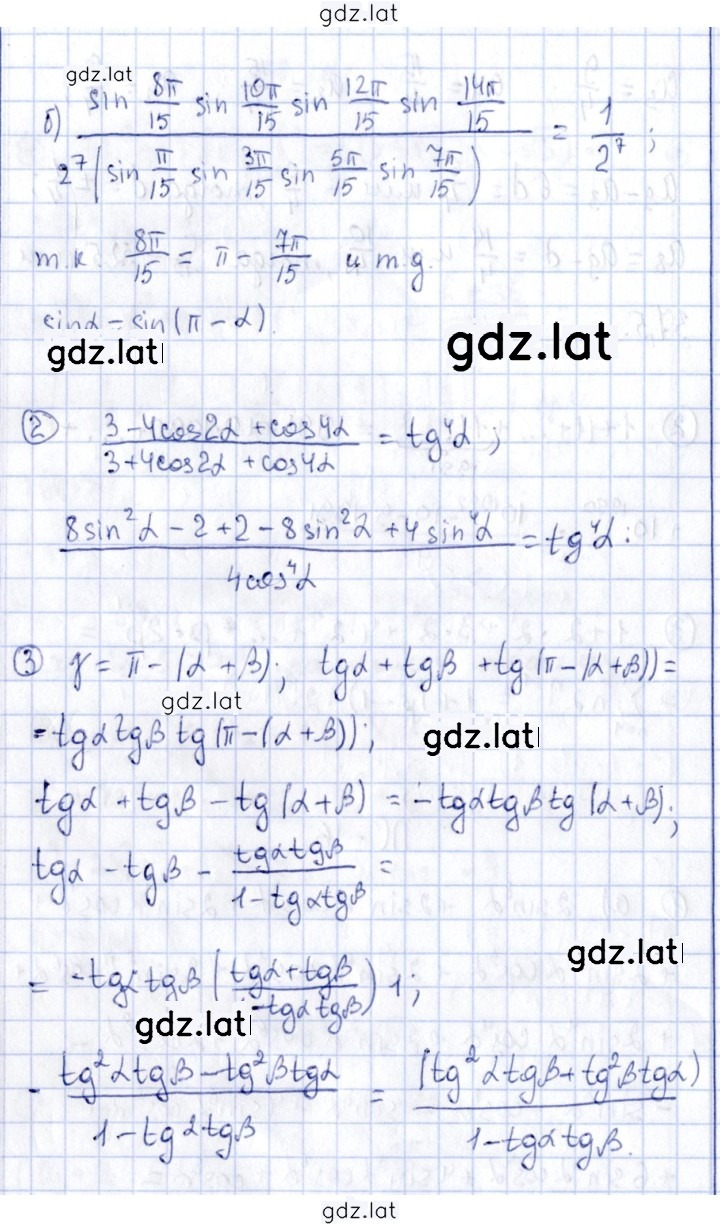 gdz.lat
gdz.lat
б) (sin 8π/15 sin 10π/15 sin 12π/15 sin 14π/15) / (2⁷(sin π/15 sin 3π/15 sin 5π/15 sin 7π/15)) = 1/2⁷ ;
т.к. 8π/15 = π - 7π/15 и т.д.
sinα = sin(π - α).
gdz.lat
gdz.lat
② (3 - 4cos2α + cos4α) / (3 + 4cos2α + cos4α) = tg⁴α ;
(8sin²α - 2 + 2 - 8sin²α + 4sin⁴α) / (4cos⁴α) = tg⁴α :
③ γ = π - (α + β); tgα + tgβ + tg(π - (α + β)) =
gdz.lat
= tgα tgβ tg(π - (α + β));
gdz.lat
tgα + tgβ - tg(α + β) = - tgα tgβ tg(α + β);
tgα - tgβ - (tgα tgβ) / (1 - tgα tgβ) =
gdz.lat
= - tgα tgβ ((tgα + tgβ) / (- tgα tgβ)) 1;
gdz.lat
- (tg²α tgβ - tg²β tgα) / (1 - tgα tgβ) = (tg²α tgβ + tg²β tgα) / (1 - tgα tgβ).
gdz.lat